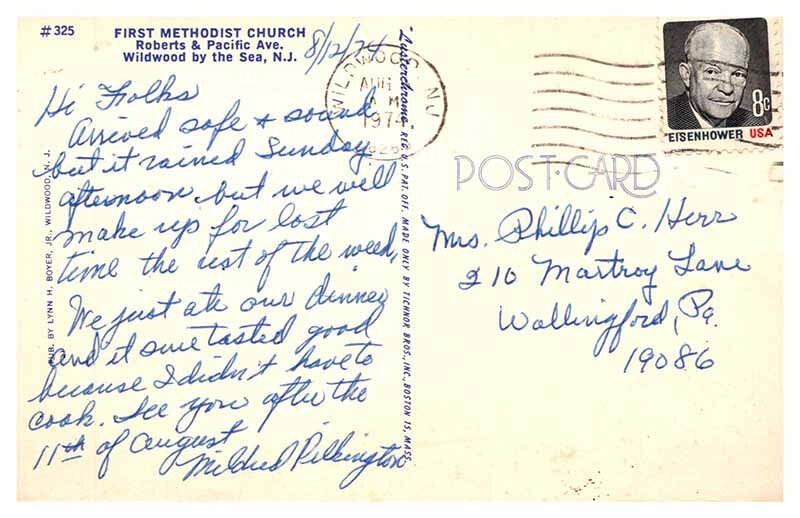 #325
FIRST METHODIST CHURCH
Roberts & Pacific Ave.
Wildwood by the Sea, N.J.
8/12/74
Hi Folks
Arrived safe & sound
but it rained Sunday
afternoon but we will
make up for lost
time the rest of the week,
We just ate our dinner
and it sure tasted good
because I didn't have to
cook. See you after the
11th of August
Mildred Pilkington
PUB. BY LYNN H. BOYER, JR., WILDWOOD, N. J.
"Lusterchrome" REG. U.S. PAT. OFF. MADE ONLY BY TICHNOR BROS., INC., BOSTON 15, MASS.
WILDWOOD, NJ
AUG
AM
1974
EISENHOWER USA
8c
POST CARD
Mrs. Phillip C. Herr
210 Martroy Lane
Wallingford, Pa.
19086